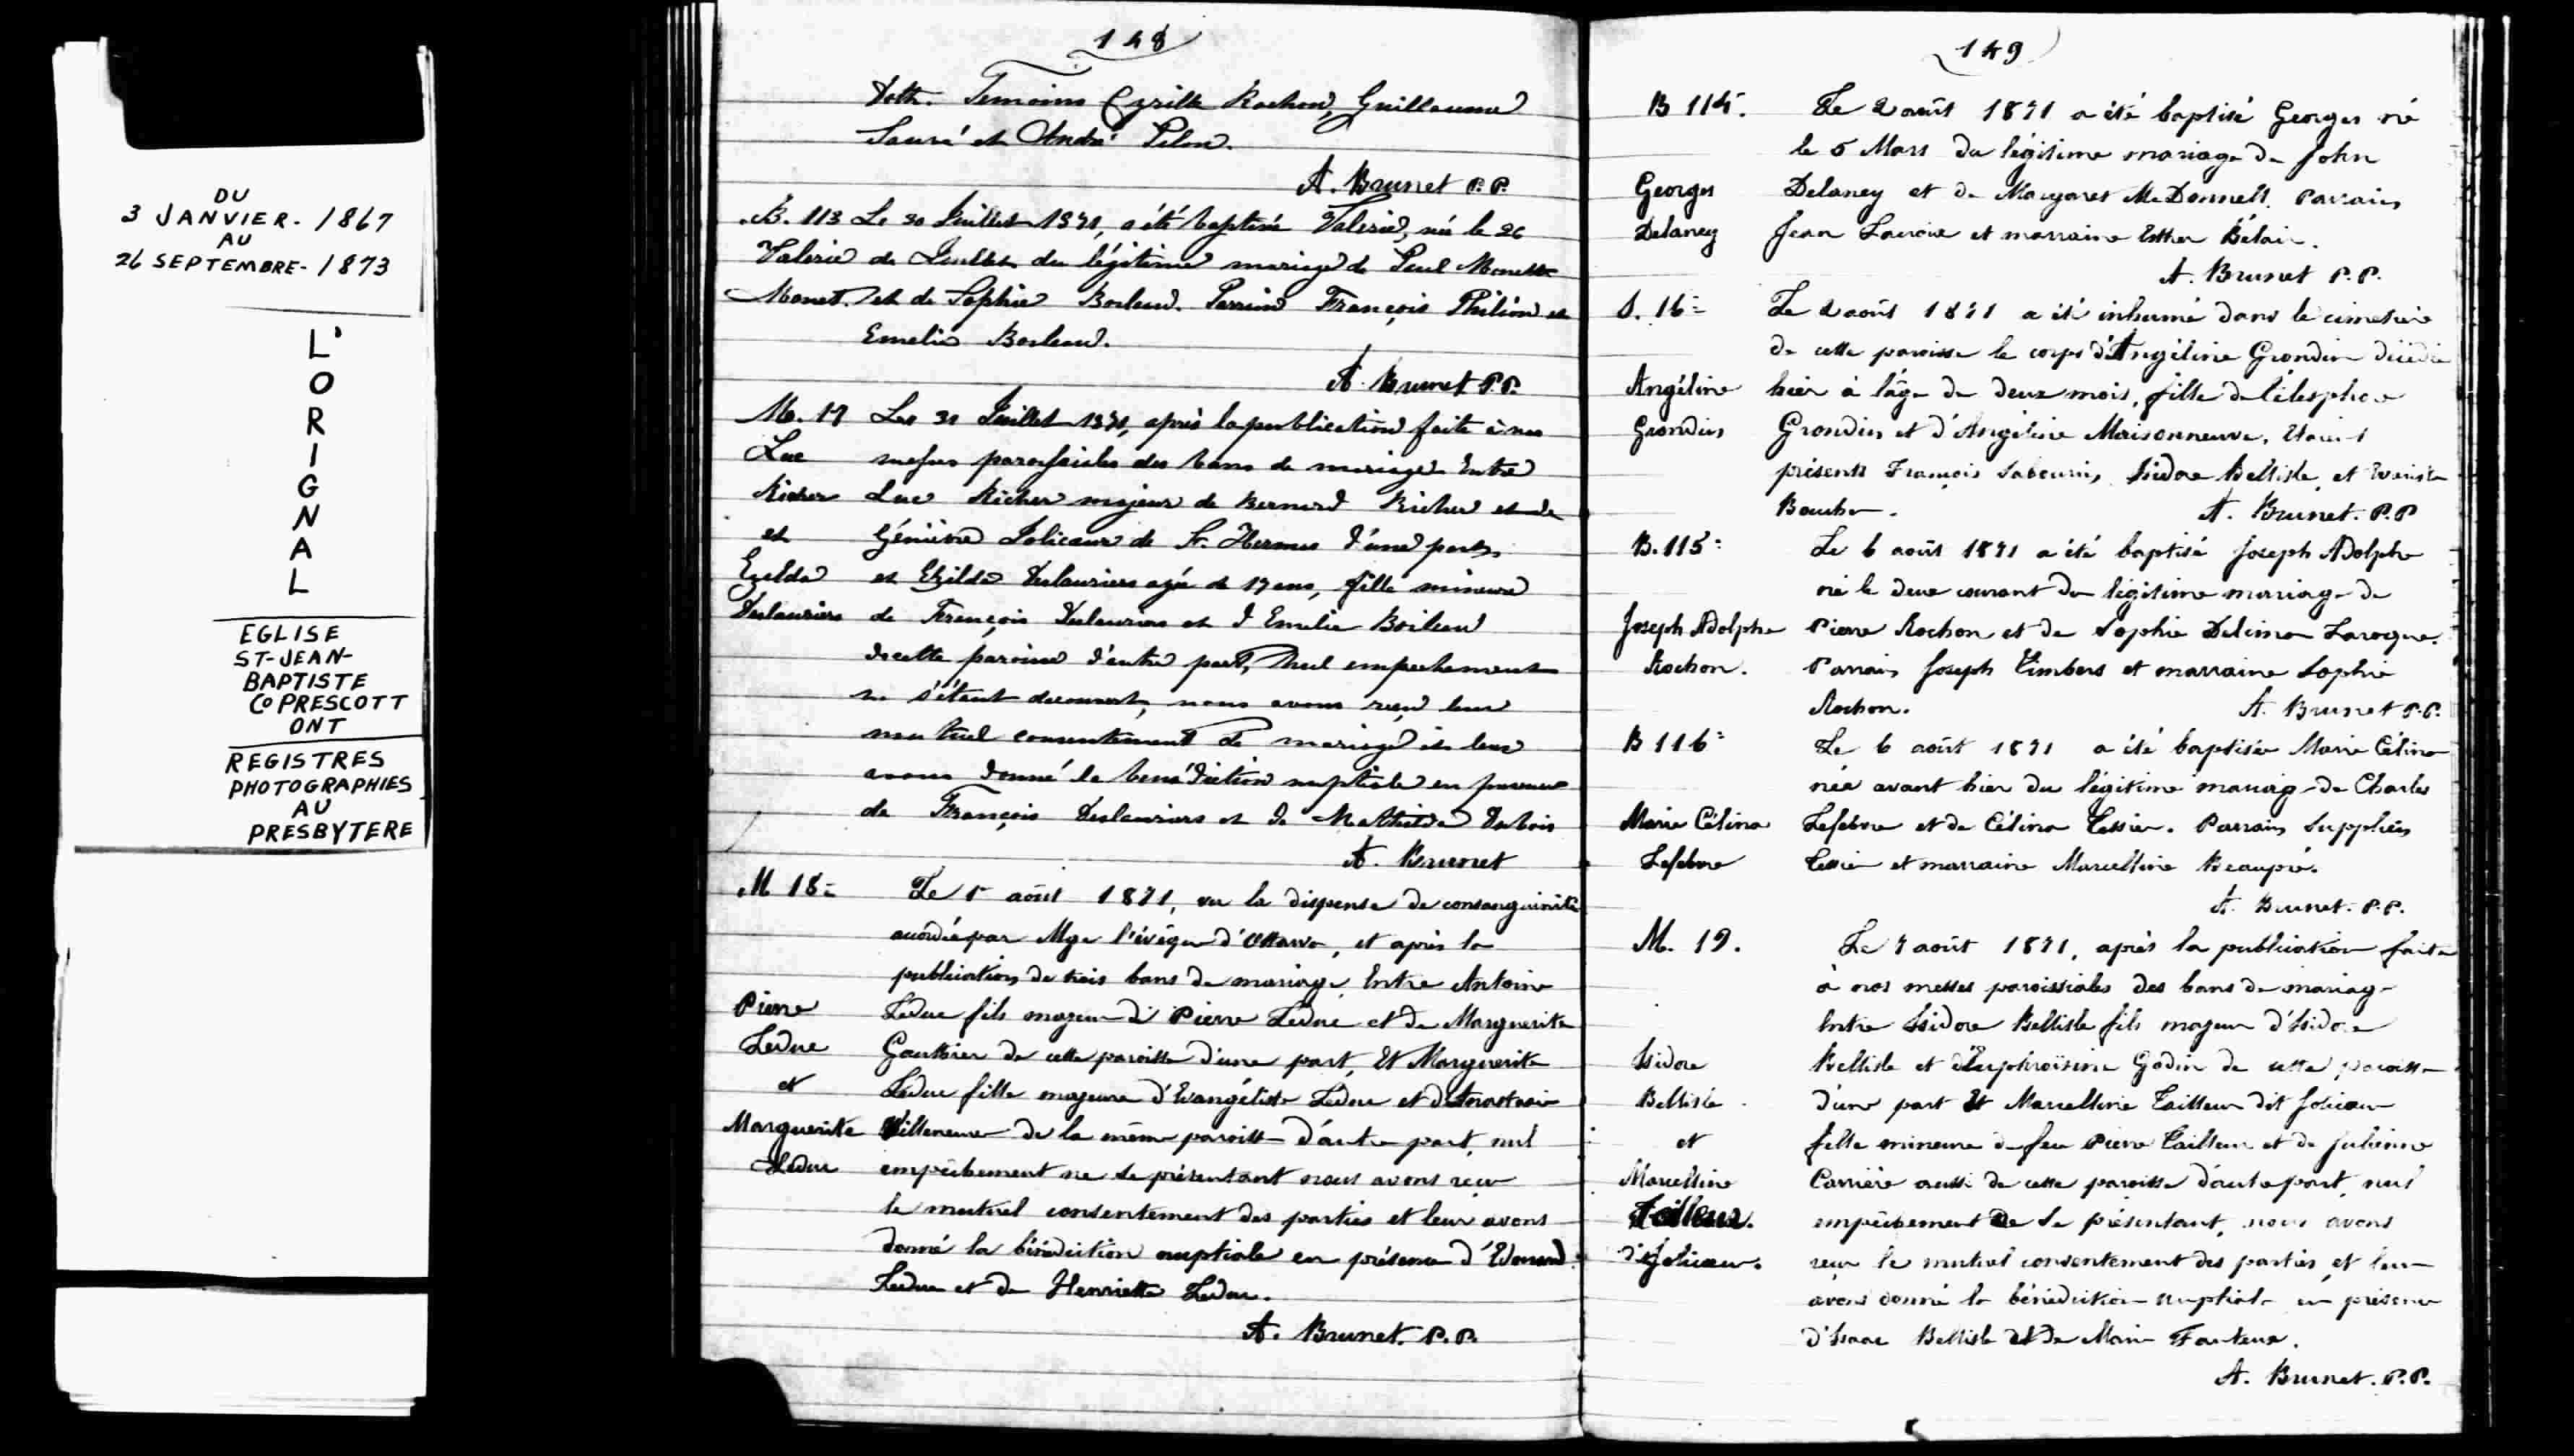 DU
3 JANVIER - 1867
AU
26 SEPTEMBRE - 1873
L'
O
R
I
G
N
A
L
EGLISE
ST-JEAN-
BAPTISTE
Co PRESCOTT
ONT
REGISTRES
PHOTOGRAPHIES
AU
PRESBYTERE
148
Temoins Cyrille Rochon, Guillaume
Sauvé et André Pilon.
A. Brunet P.P.
B. 113 Le 30 Juillet 1871, a été baptisé Valerie, née le 26
Valerie de Juillet du légitime mariage de Paul Monette
Monet. et de Sophie Parrain François Philion et
Emelie
A. Brunet P.P.
M. 17 Le 31 Juillet 1871, après la publication faite à nos
Luc messes paroissiales des bans de mariage Entre
Richer Luc Richer majeur de Bernard Richer et de
et Jolicoeur de St. Hermas d'une part,
Ezelda et Ezilda Deslauriers agée de 17 ans, fille mineure
Deslauriers de François Deslauriers et d'Emelie Boileau
de cette paroisse d'autre part, Nul empechement
ne s'étant decouvert, nous avons reçu leur
mutuel consentement de mariage et leur
avons donné la bénédiction nuptiale en presence
de François Deslauriers et de Mathilde Dubois
A. Brunet
M 18= Le 1r août 1871, vu la dispense de consanguinité
accordée par Mgr l'évêque d'Ottawa, et après la
publication de trois bans de mariage, Entre Antoine
Pierre Leduc fils majeur de Pierre Leduc et de Marguerite
Leduc Gauthier de cette paroisse d'une part, Et Marguerite
et Leduc fille majeure d'Evangéliste Leduc et d'Anastasie
Marguerite Villeneuve de la même paroisse d'autre part, nul
Leduc empêchement ne se présentant nous avons reçu
le mutuel consentement des parties et leur avons
donné la bénédiction nuptiale en présence d'Edouard
Leduc et de Henriette Leduc.
A. Brunet. P.P.
149
B 114. Le 2 août 1871 a été baptisé Georges né
le 5 Mars du légitime mariage de John
Georges Delaney et de Margaret McDonnell. Parrain
Delaney Jean Lacroix et marraine Esther Bélair.
A. Brunet P.P.
S. 16= Le 2 août 1871 a été inhumé dans le cimetière
de cette paroisse le corps d'Angéline Grondin décédée
Angéline hier à l'âge de deux mois, fille de Télesphore
Grondin Grondin et d'Angéline Maisonneuve. Etaient
présents François Sabourin, Isidore Bellisle, et Evariste
A. Brunet. P.P
B. 115= Le 6 août 1871 a été baptisé Joseph Adolphe
né le deux courant du légitime mariage de
Joseph Adolphe Pierre Rochon et de Sophie Delima Larocque.
Rochon. Parrain Joseph Timbers et marraine Sophie
Rochon. A. Brunet P.P.
B 116= Le 6 août 1871 a été baptisée Marie Célina
née avant hier du légitime mariage de Charles
Marie Célina Lefebvre et de Célina Tessier. Parrain
Lefebvre Tessier et marraine Marcelline Beaupré.
A. Brunet. P.P.
M. 19. Le 7 août 1871, après la publication faite
à nos messes paroissiales des bans de mariage
Entre Isidore Bellisle fils majeur d'Isidore
Isidore Bellisle et d'Euphrosine Godin de cette paroisse
Bellisle d'une part Et Marcelline Tailleur dit Jolicoeur
et fille mineure de feu Pierre Tailleur et de Julienne
Marcelline Carrière aussi de cette paroisse d'autre part, nul
Tailleur. empêchement ne se présentant, nous avons
dit Jolicoeur. reçu le mutuel consentement des parties et leur
avons donné la bénédiction nuptiale en présence
d'Isaac Bellisle et de Marie Fauteux.
A. Brunet. P.P.